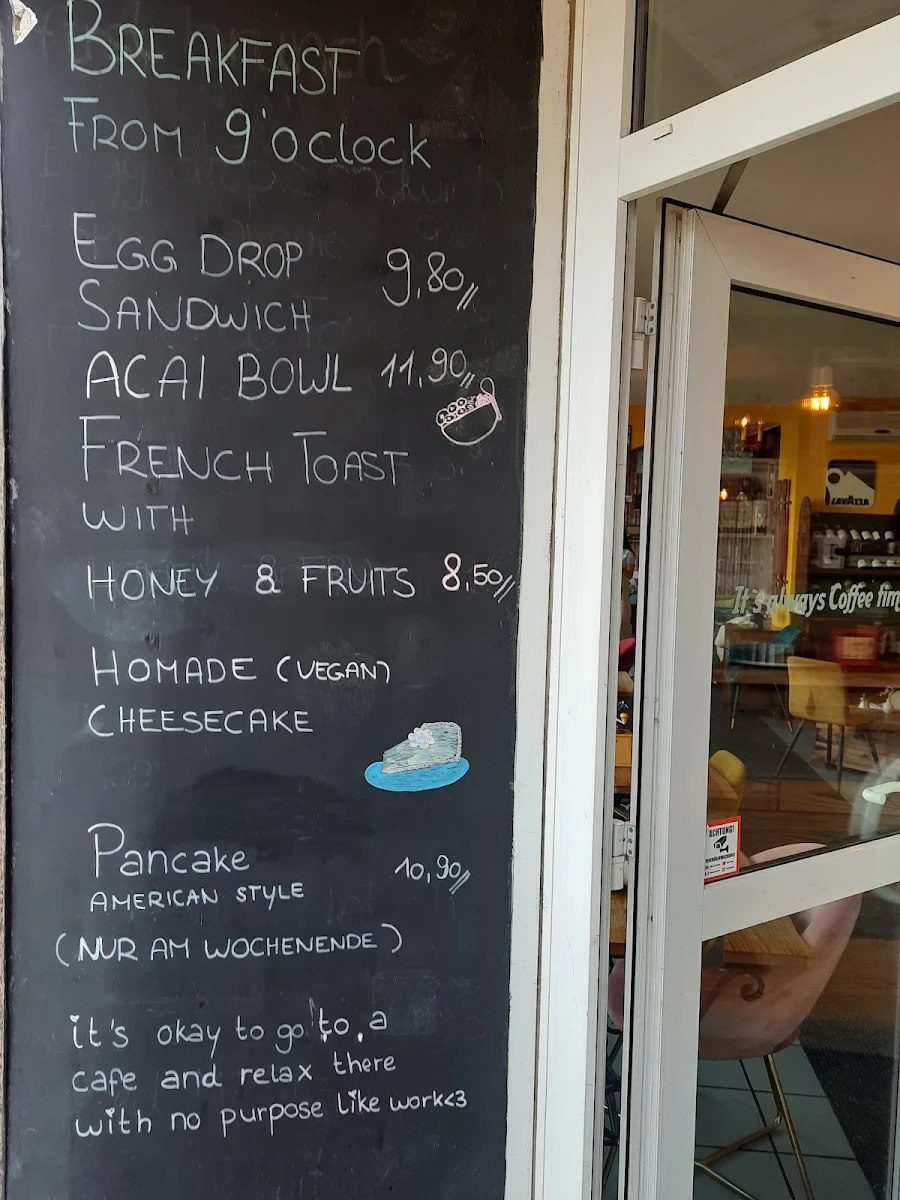 BREAKFAST
FROM 9'oclock
EGG DROP
SANDWICH
9,80,,
ACAI BOWL 11,90,,
FRENCH TOAST
WITH
HONEY & FRUITS 8,50,,
HOMADE (VEGAN)
CHEESECAKE
Pancake 10,90,,
AMERICAN STYLE
(NUR AM WOCHENENDE)
it's okay to go to, a
cafe and relax there
with no purpose like work<3
LAVAZZA
It's always Coffee tim
ACHTUNG!